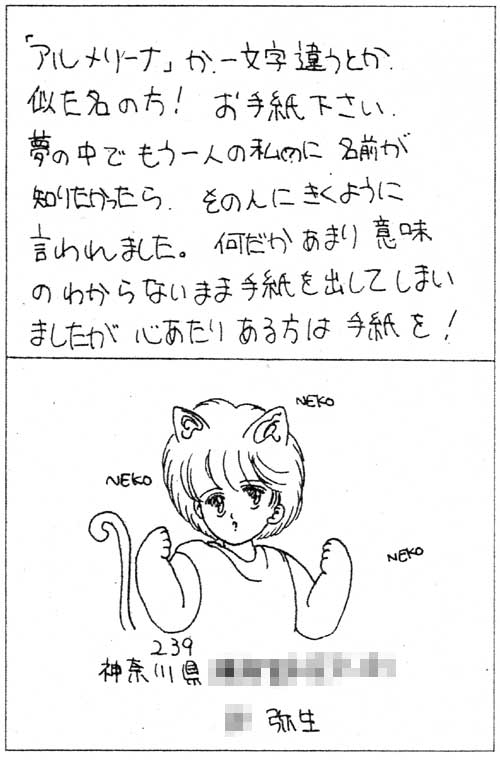 「アルメリーナ」か、一文字違うとか、
似た名の方! お手紙下さい、
夢の中でもう一人の私(?)に 名前が
知りたかったら、その人にきくように
言われました。何だかあまり意味
のわからないまま手紙を出してしまい
ましたが 心あたりある方は 手紙を!
NEKO
NEKO
NEKO
239
神奈川県
弥生